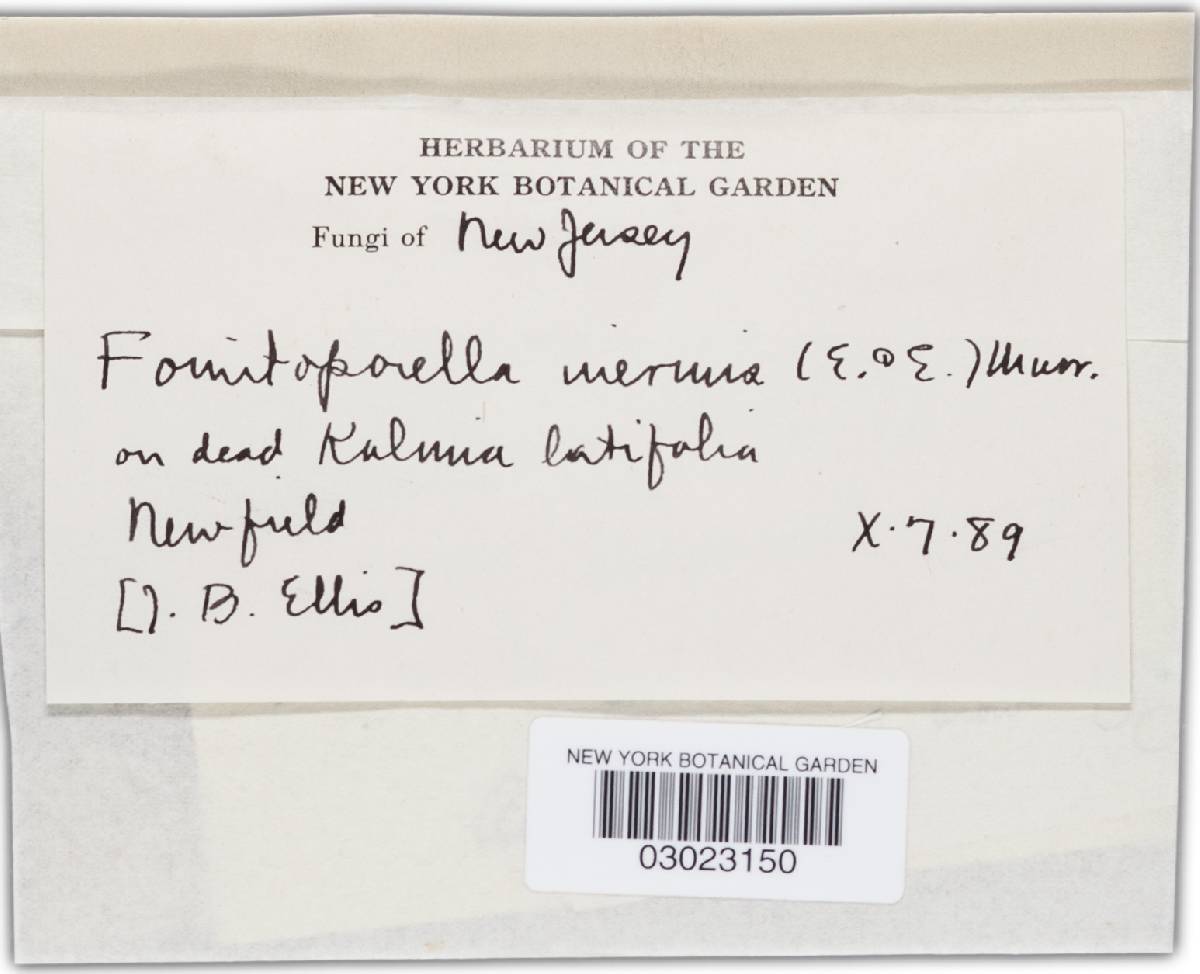 HERBARIUM OF THE
NEW YORK BOTANICAL GARDEN
Fungi of New Jersey
Fomitoporella inermis (E. & E.) Murr.
on dead Kalmia latifolia
Newfield X.7.89
[J. B. Ellis]
NEW YORK BOTANICAL GARDEN
03023150